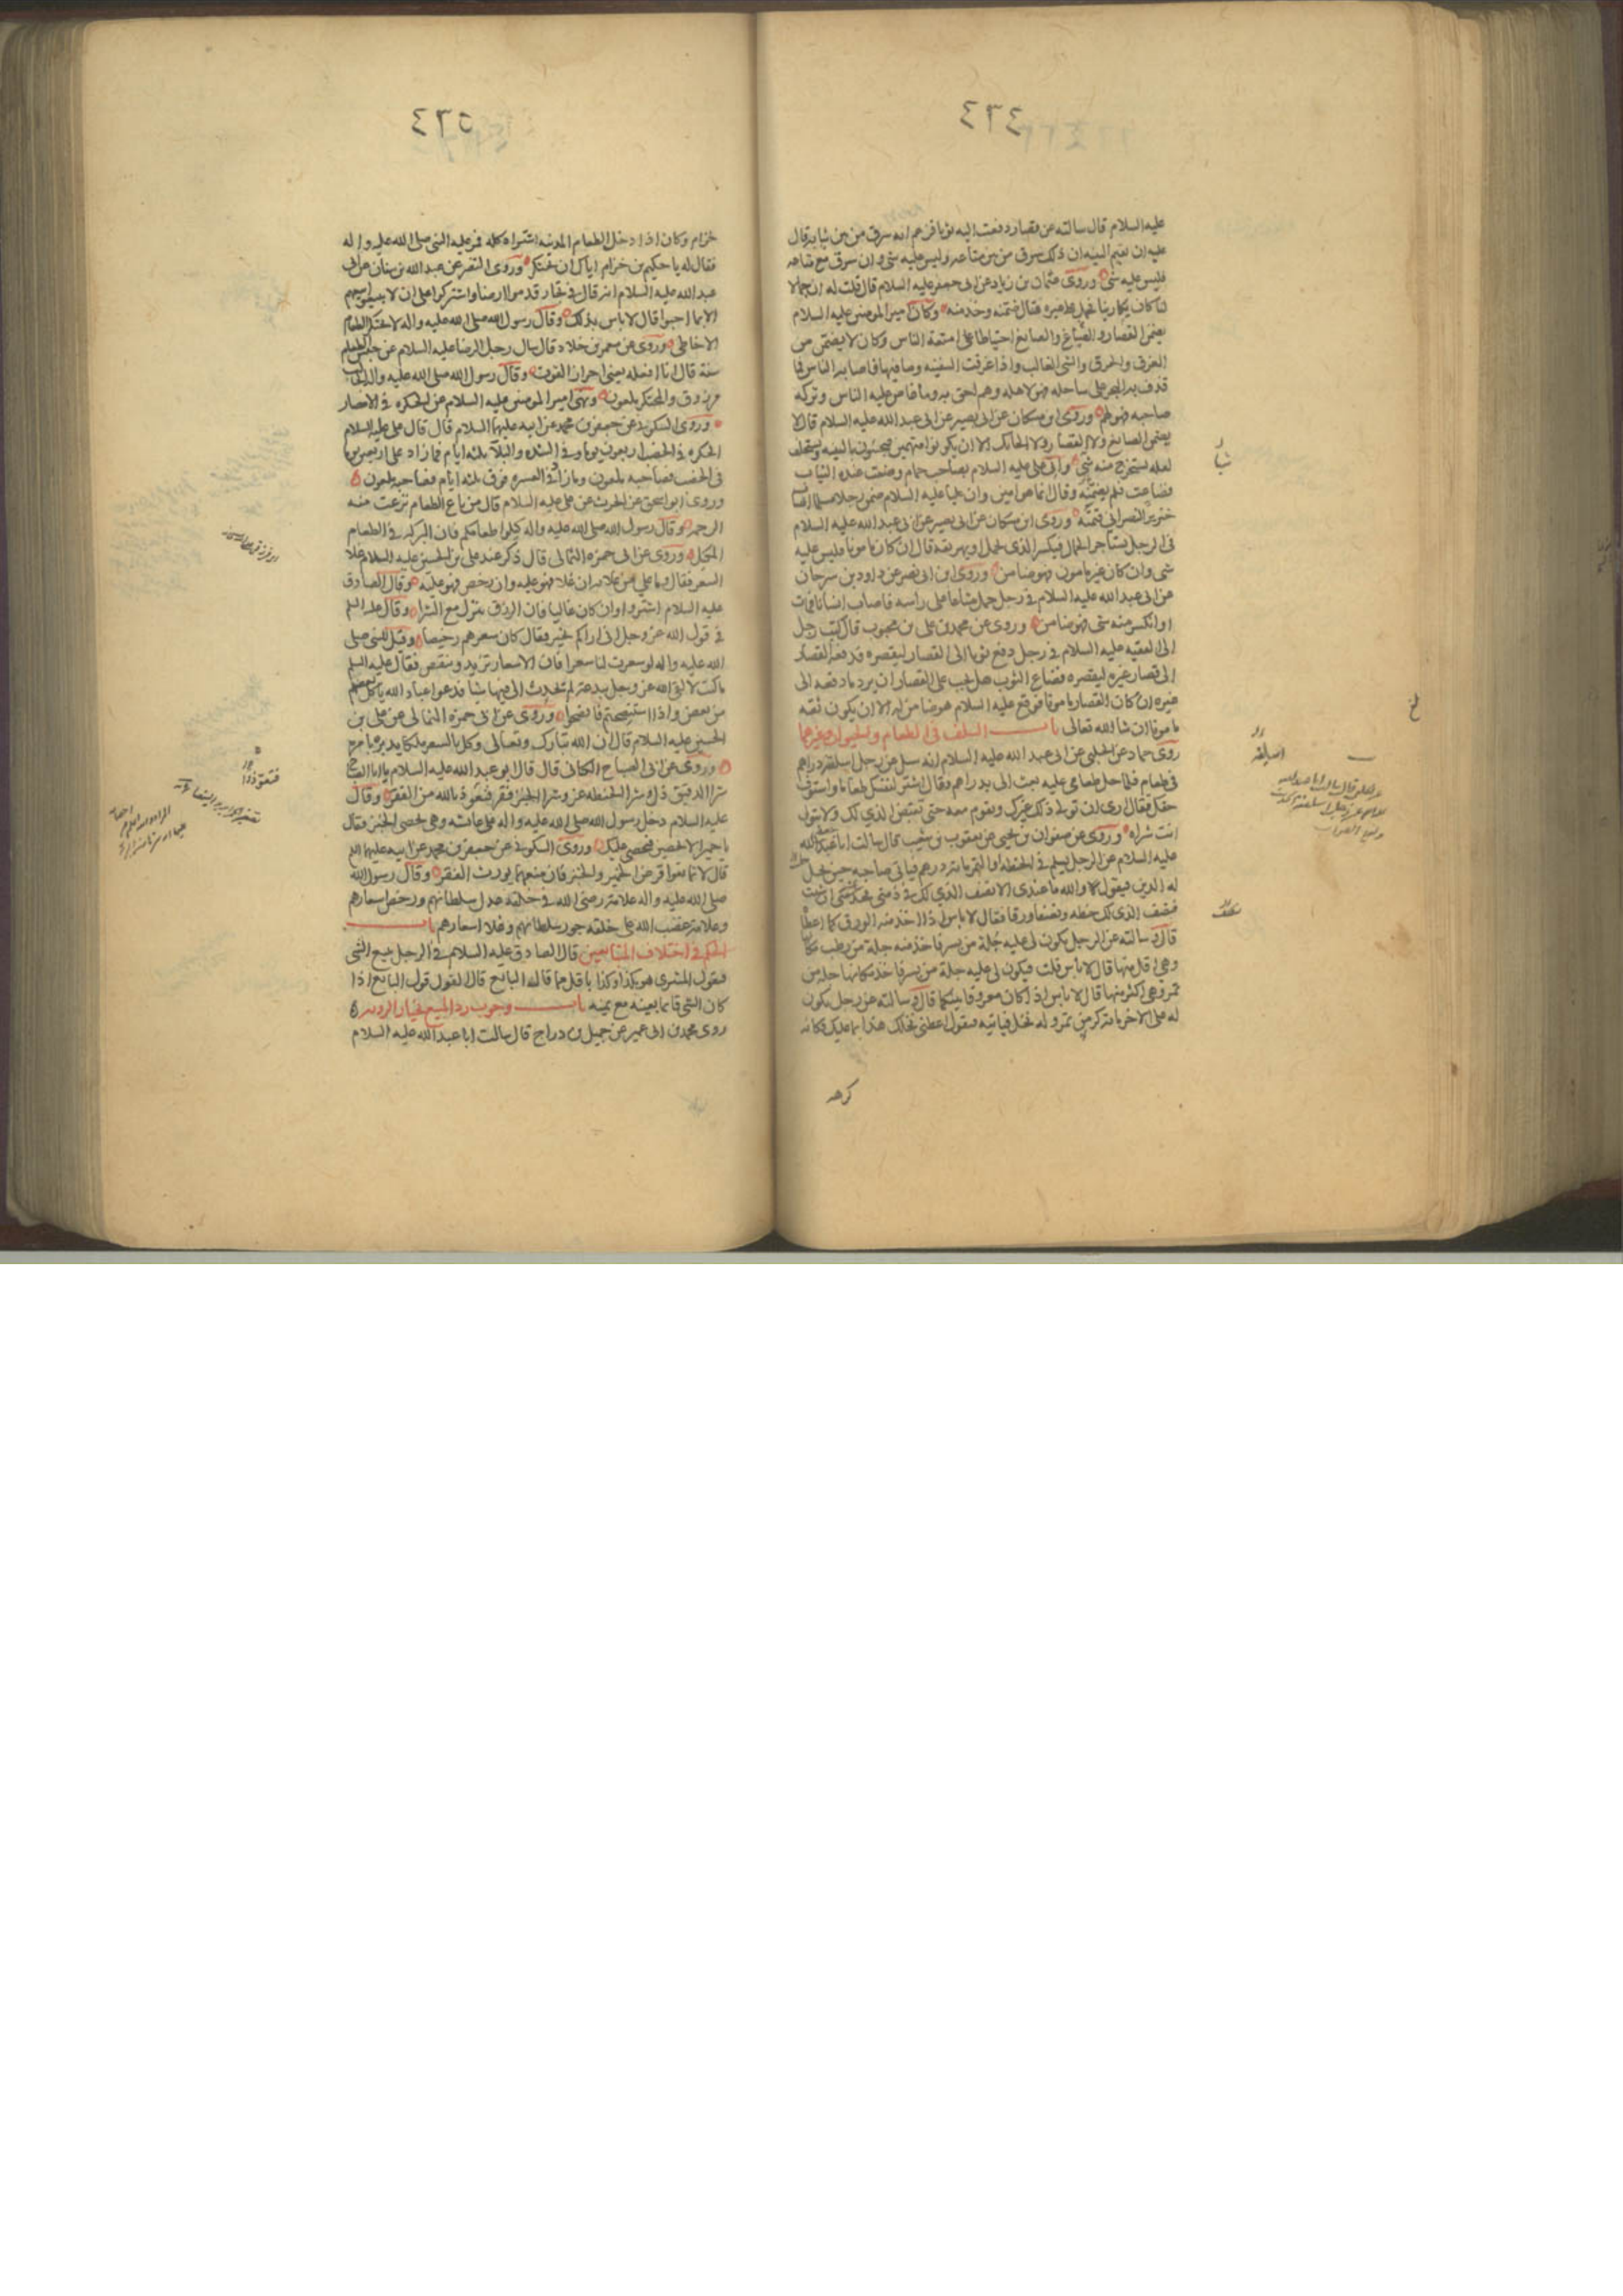 ٤٣٤
عليه السلام قال سالته عن قصار دفعت اليه ثوبا فزعم انه سرق من بين ثيابه قال
عليه ان يقيم البينه ان ذلك سرق من بين متاعه وليس عليه شى وان سرق مع متاعه
فليس عليه شى وروى عثمان بن زياد عن ابى جعفر عليه السلام قال قلت له ان جمالا
لنا كان يكارينا فحمل على غيره فقال ضمنه وخذ منه وكان امير المومنين عليه السلام
يضمن القصار والصباغ والصائغ احتياطا على امتعة الناس وكان لا يضمن من
الغرق والحرق والشى الغالب واذا غرقت السفينه وما فيها فاصابه الناس فما
قذف به البحر على ساحله فهو لاهله وهم احق به وما غاص عليه الناس وتركه
صاحبه فهو لهم وروى ابن مسكان عن ابى بصير عن ابى عبد الله عليه السلام قال لا
يضمن الصائغ ولا القصار ولا الحائك الا ان يكونوا متهمين فيجيئون بالبينه ويستحلف
لعله يستخرج منه شى واتى على عليه السلام بصاحب حمام وضعت عنده الثياب
فضاعت فلم يضمنه وقال انما هو امين وان عليا عليه السلام ضمن رجلا مسلما اصاب
خنزير النصرانى قيمته وروى ابن مسكان عن ابى بصير عن ابى عبد الله عليه السلام
فى الرجل يستاجر الحمال فيكسر الذى يحمل او يهريقه قال ان كان مامونا فليس عليه
شى وان كان غير مامون فهو ضامن وروى ابن ابى نصر عن داود بن سرحان
عن ابى عبد الله عليه السلام فى رجل حمل متاعا على راسه فاصاب انسانا فمات
او انكسر منه شى فهو ضامن وروى عن محمد بن على بن محبوب قال كتب رجل
الى الفقيه عليه السلام فى رجل دفع ثوبا الى القصار ليقصره فدفعه القصار
الى قصار غيره ليقصره فضاع الثوب هل يجب على القصار ان يرد ما دفعه الى
غيره ان كان القصار مامونا فوقع عليه السلام هو ضامن له الا ان يكون ثقه
مامونا ان شا الله تعالى باب السلف فى الطعام والحيوان وغيرهما
روى حماد عن الحلبى عن ابى عبد الله عليه السلام انه سئل عن رجل اسلفته دراهم
فى طعام فلما حل طعامى عليه بعث الى بدراهم وقال اشتر لنفسك طعاما واستوف
حقك فقال ارى ان تولى ذلك غيرك وتقوم معه حتى تقبض الذى لك ولا تتولى
انت شراه وروى عن صفوان بن يحيى عن يعقوب بن شعيب قال سالت ابا عبد الله
عليه السلام عن الرجل يسلم فى الحنطه او التمر بمائه درهم فياتى صاحبه حين يحل
له الدين فيقول والله ما عندى الا نصف الذى لك فخذ منى ان شئت
نصف الذى لك حنطه ونصفا ورقا فقال لا باس اذا اخذ منه الورق كما اعطاه
قال وسالته عن الرجل يكون لى عليه جلة من بسر فاخذ منه جلة من رطب مكانها
وهى اقل منها قال لا باس قلت فيكون لى عليه جلة من بسر فاخذ مكانها جلة من
تمر وهى اكثر منها قال لا باس اذا كان معروفا بينكما قال وسالته عن رجل يكون
له على الاخر مائة كر من تمر وله نخل فياتيه فيقول اعطنى نخلك هذا بما عليك فكانه
كرهه
اسلفته
٥٣٤
حزام وكان اذا دخل الطعام المدينه اشتراه كله فمر عليه النبى صلى الله عليه واله
فقال له يا حكيم بن حزام اياك ان تحتكر وروى النضر عن عبد الله بن سنان عن ابى
عبد الله عليه السلام انه قال فى تجار قدموا ارضا واشتركوا على ان لا يبيعوا بيعهم
الا بما احبوا قال لا باس بذلك وقال رسول الله صلى الله عليه واله لا يحتكر الطعام
الا خاطى وروى عن معمر بن خلاد قال سال رجل الرضا عليه السلام عن حبس الطعام
سنة قال انا افعله يعنى احراز القوت وقال رسول الله صلى الله عليه واله الجالب
مرزوق والمحتكر ملعون ونهى امير المومنين عليه السلام عن الحكره فى الامصار
وروى السكونى عن جعفر بن محمد عن ابيه عليهما السلام قال قال على عليه السلام
الحكره فى الخصب اربعون يوما وفى الشده والبلا ثلثه ايام فما زاد على اربعين يوما
فى الخصب فصاحبه ملعون وما زاد فى العسره فوق ثلثه ايام فصاحبه ملعون
وروى ابو اسحق عن الحرث عن على عليه السلام قال من باع الطعام نزعت منه
الرحمه وقال رسول الله صلى الله عليه واله كيلوا طعامكم فان البركه فى الطعام
المكيل وروى عن ابى حمزه الثمالى قال ذكر عند على بن الحسين عليه السلام غلا
السعر فقال وما على من غلائه ان غلا فهو عليه وان رخص فهو عليه وقال الصادق
عليه السلام اشتروا وان كان غاليا فان الرزق ينزل مع الشرا وقال عليه السلم
فى قول الله عز وجل انى اراكم بخير فقال كان سعرهم رخيصا وقيل للنبى صلى
الله عليه واله لو سعرت لنا سعرا فان الاسعار تزيد وتنقص فقال عليه السلم
ما كنت لالقى الله عز وجل ببدعة لم يحدث الى فيها شيا فدعوا عباد الله ياكل بعضهم
من بعض واذا استنصحتم فانصحوا وروى عن ابى حمزه الثمالى عن على بن
الحسين عليه السلام قال ان الله تبارك وتعالى وكل بالسعر ملكا يدبره بامره
وروى عن ابى الصباح الكنانى قال قال ابو عبد الله عليه السلام يا ابا الصباح
شرا الدقيق ذل وشرا الحنطه عز وشرا الخبز فقر فتعوذ بالله من الفقر وقال
عليه السلام دخل رسول الله صلى الله عليه واله على عائشه وهى تحصى الخبز فقال
يا حميرا لا تحصين فيحصى عليك وروى السكونى عن جعفر بن محمد عن ابيه عليهما السلم
قال لا تمانعوا قرض الخمير والخبز فان منعهما يورث الفقر وقال رسول الله
صلى الله عليه واله علامة رضى الله فى خلقه عدل سلطانهم ورخص اسعارهم
وعلامة غضب الله على خلقه جور سلطانهم وغلا اسعارهم باب
الحكم فى اختلاف المتبايعين قال الصادق عليه السلام فى الرجل يبيع الشى
فيقول المشترى هو بكذا وكذا باقل مما قاله البايع قال القول قول البايع اذا
كان الشى قائما بعينه مع يمينه باب وجوب رد المبيع بخيار الرويه
روى محمد بن ابى عمير عن جميل بن دراج قال سالت ابا عبد الله عليه السلام